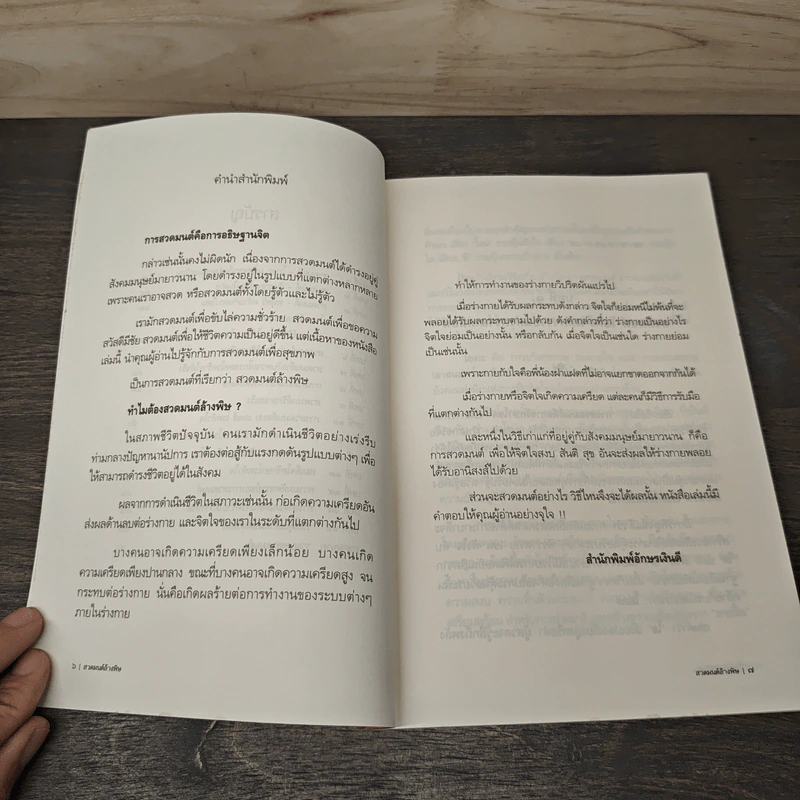 คำนำสำนักพิมพ์
การสวดมนต์คือการอธิษฐานจิต
กล่าวเช่นนั้นคงไม่ผิดนัก เนื่องจากการสวดมนต์ได้ดำรงอยู่คู่
สังคมมนุษย์มายาวนาน โดยดำรงอยู่ในรูปแบบที่แตกต่างหลากหลาย
เพราะคนเราอาจสวด หรือสวดมนต์ทั้งโดยรู้ตัวและไม่รู้ตัว
เรามักสวดมนต์เพื่อขับไล่ความชั่วร้าย สวดมนต์เพื่อขอความ
สวัสดีมีชัย สวดมนต์เพื่อให้ชีวิตความเป็นอยู่ดีขึ้น แต่เนื้อหาของหนังสือ
เล่มนี้ นำคุณผู้อ่านไปรู้จักกับการสวดมนต์เพื่อสุขภาพ
เป็นการสวดมนต์ที่เรียกว่า สวดมนต์ล้างพิษ
ทำไมต้องสวดมนต์ล้างพิษ ?
ในสภาพชีวิตปัจจุบัน คนเรามักดำเนินชีวิตอย่างเร่งรีบ
ท่ามกลางปัญหานานัปการ เราต้องต่อสู้กับแรงกดดันรูปแบบต่างๆ เพื่อ
ให้สามารถดำรงชีวิตอยู่ได้ในสังคม
ผลจากการดำเนินชีวิตในสภาวะเช่นนั้น ก่อเกิดความเครียดอัน
ส่งผลด้านลบต่อร่างกาย และจิตใจของเราในระดับที่แตกต่างกันไป
บางคนอาจเกิดความเครียดเพียงเล็กน้อย บางคนเกิด
ความเครียดเพียงปานกลาง ขณะที่บางคนอาจเกิดความเครียดสูง จน
กระทบต่อร่างกาย นั่นคือเกิดผลร้ายต่อการทำงานของระบบต่างๆ
ภายในร่างกาย
๖ | สวดมนต์ล้างพิษ
ทำให้การทำงานของร่างกายวิปริตผันแปรไป
เมื่อร่างกายได้รับผลกระทบดังกล่าว จิตใจก็ย่อมหนีไม่พ้นที่จะ
พลอยได้รับผลกระทบตามไปด้วย ดังคำกล่าวที่ว่า ร่างกายเป็นอย่างไร
จิตใจย่อมเป็นอย่างนั้น หรือกลับกัน เมื่อจิตใจเป็นเช่นใด ร่างกายย่อม
เป็นเช่นนั้น
เพราะกายกับใจคือพี่น้องฝาแฝดที่ไม่อาจแยกขาดออกจากกันได้
เมื่อร่างกายหรือจิตใจเกิดความเครียด แต่ละคนก็มีวิธีการรับมือ
ที่แตกต่างกันไป
และหนึ่งในวิธีเก่าแก่ที่อยู่คู่กับสังคมมนุษย์มายาวนาน ก็คือ
การสวดมนต์ เพื่อให้จิตใจสงบ สันติ สุข อันจะส่งผลให้ร่างกายพลอย
ได้รับอานิสงส์ไปด้วย
ส่วนจะสวดมนต์อย่างไร วิธีไหนจึงจะได้ผลนั้น หนังสือเล่มนี้มี
คำตอบให้คุณผู้อ่านอย่างจุใจ !!
สำนักพิมพ์อักษรเงินดี
สวดมนต์ล้างพิษ | ๗